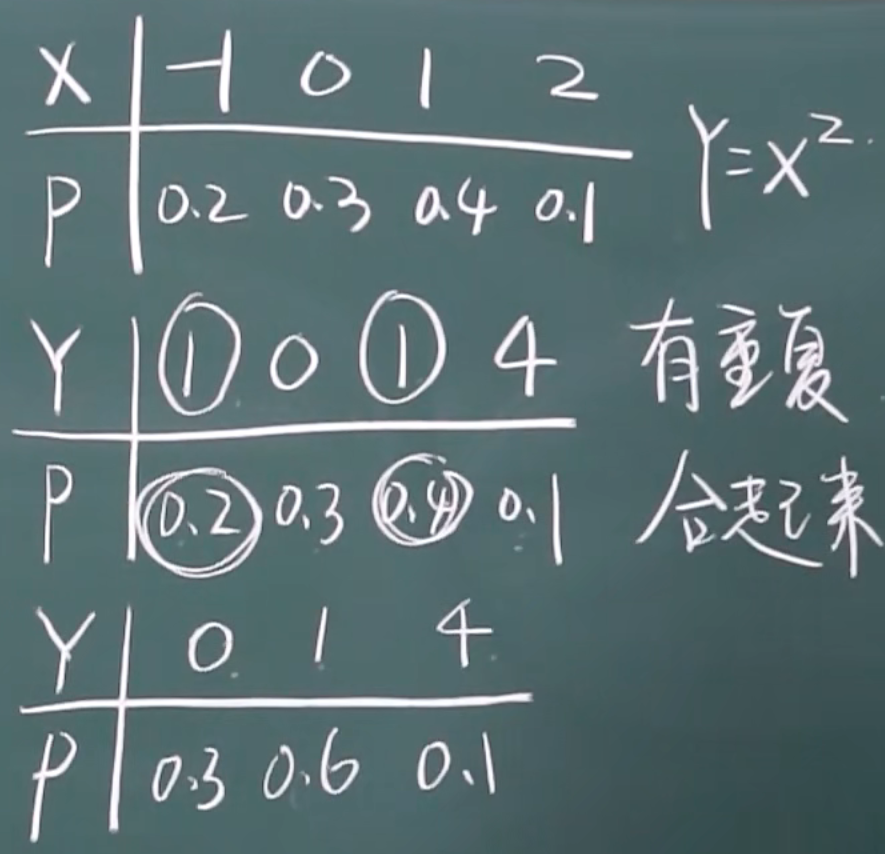 X -1 0 1 2
P 0.2 0.3 0.4 0.1
Y=X².
Y 1 0 1 4
有重复
P 0.2 0.3 0.4 0.1
合起来
Y 0 1 4
P 0.3 0.6 0.1